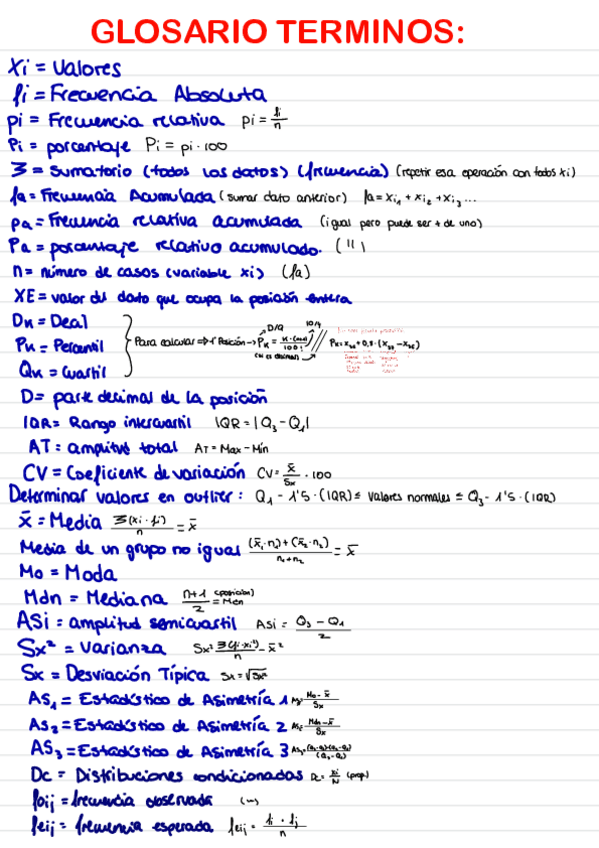 GLOSARIO TERMINOS:
Xi = Valores
fi = Frecuencia Absoluta
pi = Frecuencia relativa pi = fi/n
Pi = porcentaje Pi = pi · 100
Σ = Sumatorio (todos los datos) (frecuencia) (repetir esa operación con todos xi)
fa = Frecuencia Acumulada (sumar dato anterior) fa = xi₁ + xi₂ + xi₃ ...
pa = Frecuencia relativa acumulada (igual pero puede ser + de uno)
Pa = porcentaje relativo acumulado. ( " )
n = número de casos (variable xi) (fa)
XE = valor del dato que ocupa la posición entera
Dk = Decil
Pk = Percentil } Para calcular ⇒ 1ª Posición →
Qk = Cuartil
D = parte decimal de la posición
IQR = Rango intercuartil IQR = |Q₃ - Q₁|
AT = amplitud total AT = Max - Mín
CV = Coeficiente de variación CV = x̄/Sx · 100
Determinar valores en outlier: Q₁ - 1'5 · (IQR) ≤ valores normales ≤ Q₃ - 1'5 · (IQR)
x̄ = Media Σ(xi · fi)/n = x̄
Media de un grupo no igual (x̄₁·n₁) + (x̄₂·n₂)/n₁+n₂ = x̄
Mo = Moda
Mdn = Mediana n+1/2 (posición) = Mdn
ASi = amplitud semicuartil ASi = Q₃ - Q₁/2
Sx² = Varianza Sx² = Σ(fi·xi²)/n - x̄²
Sx = Desviación Típica Sx = √Sx²
AS₁ = Estadístico de Asimetría 1 As₁ = Mo - x̄/Sx
As₂ = Estadístico de Asimetría 2 As₂ = Mdn - x̄/Sx
AS₃ = Estadístico de Asimetría 3
Dc = Distribuciones condicionadas Dc = xi/N (prop)
foij = frecuencia observada
feij = frecuencia esperada feij = fi · fj/n